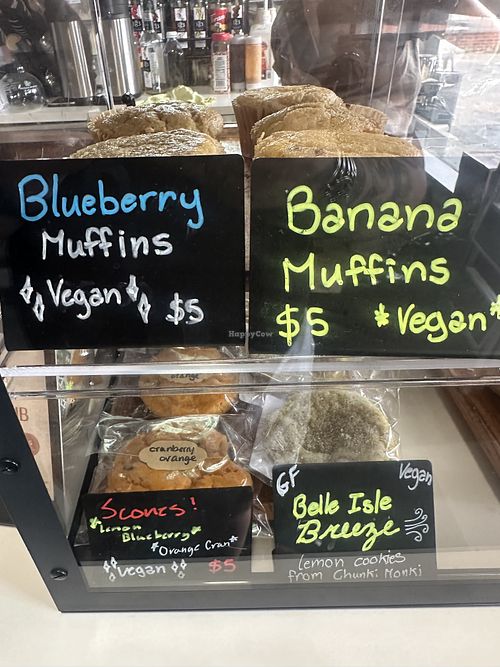 Blueberry
Muffins
Vegan
$5
Banana
Muffins
$5 *Vegan*
HappyCow
orange
cranberry
orange
Scones!
*Lemon
Blueberry*
*Orange Cran*
Vegan $5
GF Vegan
Belle Isle
Breeze
lemon cookies
from Chunki Monki